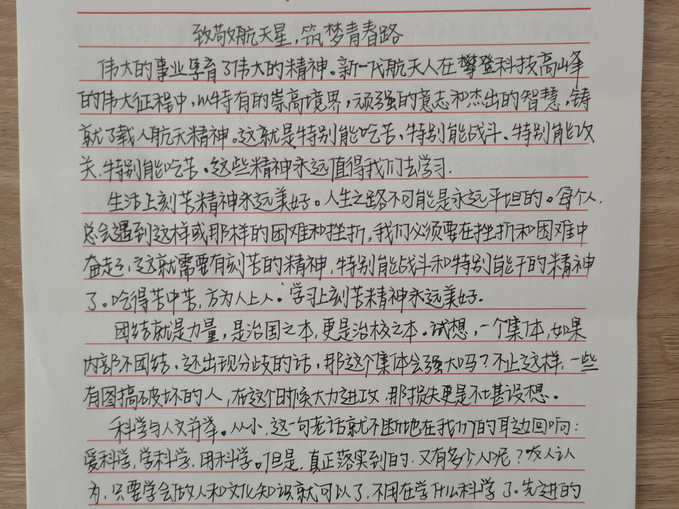 致敬航天星，筑梦青春路
伟大的事业孕育了伟大的精神。新一代航天人在攀登科技高峰
的伟大征程中，以特有的崇高境界，顽强的意志和杰出的智慧，铸
就了载人航天精神。这就是特别能吃苦、特别能战斗、特别能攻
关、特别能吃苦。这些精神永远值得我们去学习.
生活上刻苦精神永远美好。人生之路不可能是永远平坦的。每个人，
总会遇到这样或那样的困难和挫折，我们必须要在挫折和困难中
奋起，这就需要有刻苦的精神，特别能战斗和特别能干的精神
了。吃得苦中苦，方为人上人。学习上刻苦精神永远美好.
团结就是力量，是治国之本，更是治校之本。试想，一个集体，如果
内部不团结，还出现分歧的话，那这个集体会强大吗？不止这样，一些
有图搞破坏的人，在这个时候大力进攻，那损失更是不堪设想。
科学与人文并举。从小，这一句老话就不断地在我们的耳边回响：
爱科学，学科学，用科学。但是，真正落实到的，又有多少人呢？有人认
为，只要学会做人和文化知识就可以了，不用在学什么科学了。先进的